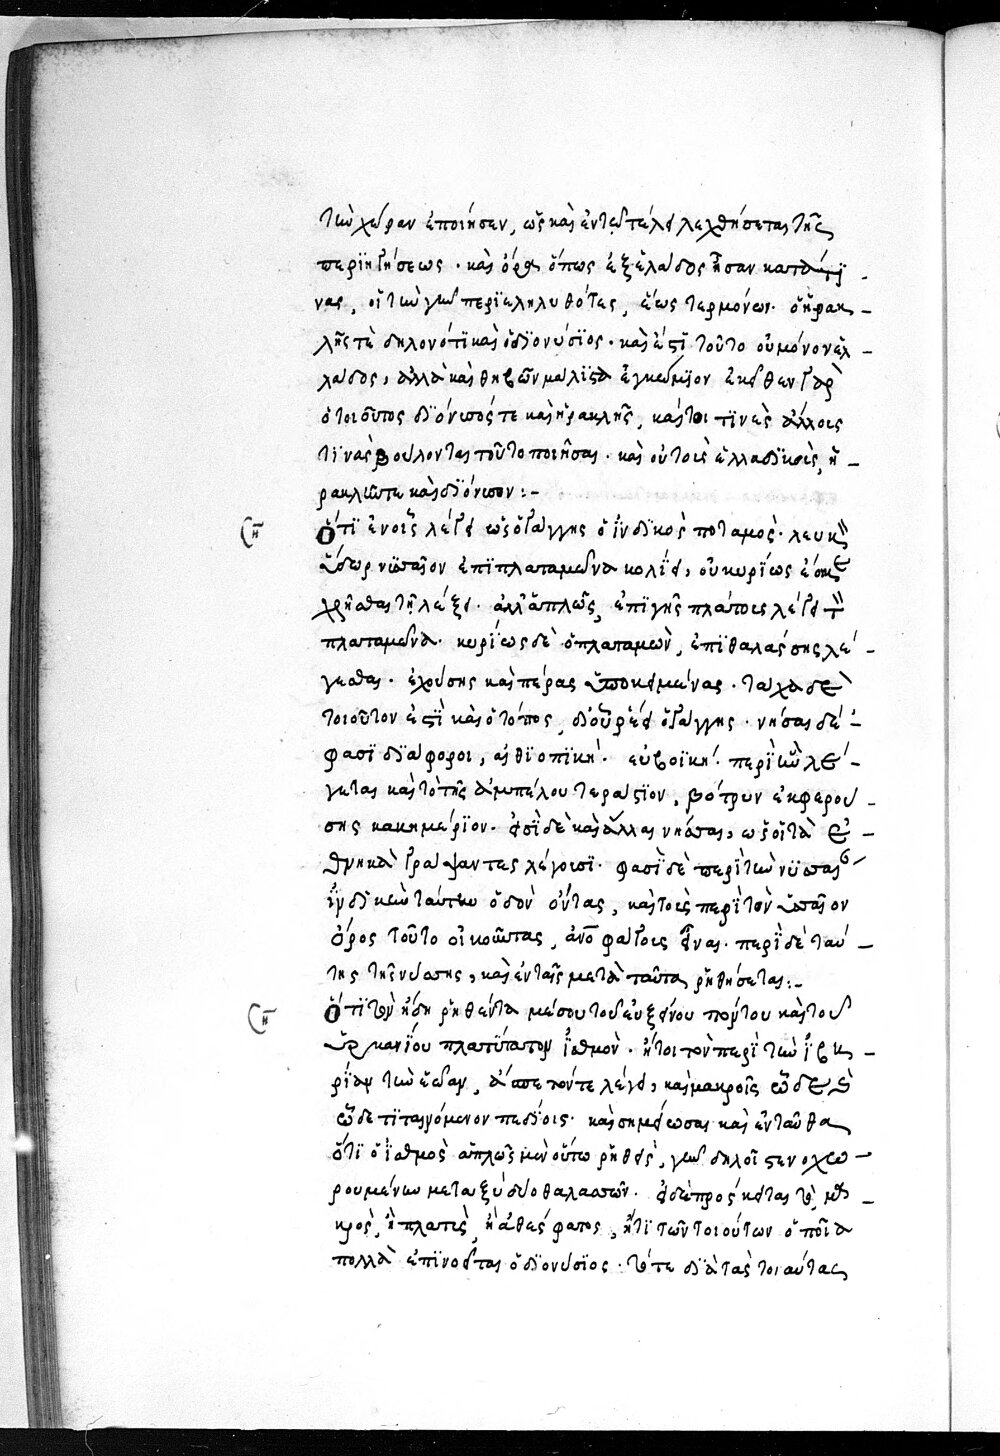 τὴν χεῖραν ἐποίησεν, ὡς καὶ ἐν τῷ τέλει λεχθήσεται τῆς
περιηγήσεως. καὶ ὅρα ὅπως ἐξ ἑλλάδος ἦσαν
νας, οἱ τὴν γῆν περιεληλυθότες, ἕως τερμόνων. ὁ ἡρακ
λῆς τὲ δηλονότι καὶ ὁ διονύσιος. καὶ ἐστὶ τοῦτο οὐ μόνον ἑλ
λάδος, ἀλλὰ καὶ θηβῶν μάλιστα ἐγκώμιον ἐκεῖθεν γὰρ
ὁ τοιοῦτος διόνυσός τε καὶ ἡρακλῆς, καί τοι τινὲς ἄλλοις
τινὰς βούλονται τοῦτο ποιῆσαι. καὶ οὐ τοῖς ἑλλαδικοῖς, ἡ
ρακλεῖ τε καὶ διόνυσον:-
Ὅτι ἐν οἷς λέγει ὡς ὁ γάγγης ὁ ἰνδικὸς ποταμὸς λευκὸν
ὕδωρ νυσσαῖον ἐπὶ πλαταμῶνα κυλίει, οὐ κυρίως ἐοικε
χρῆσθαι τῇ λέξει. ἀλλ' ἁπλῶς, ἐπὶ γῆς πλάτους λέγει τὸν
πλαταμῶνα. κυρίως δὲ ὁ πλαταμὼν, ἐπὶ θαλάσσης λέ
γεσθαι. ἐχούσης καὶ πέρας ὑποκειμένας. τάχα δὲ
τοιοῦτον ἐστὶ καὶ ὁ τόπος, δι' οὗ ῥέει ὁ γάγγης. νήσας δέ
φασι διάφοροι, αἰθιοπική. εὐβοϊκή. περὶ ἣν λέ
γεται καὶ τὸ τῆς ἀμπέλου τεράστιον, βότρυν ἐκφερού
σης κακημερϊον. εἰσὶ δὲ καὶ ἄλλαι νῆσσαι, ὡς οἱ τὰ ἐ
θνηκὰ γράψαντες λέγουσι. φασὶ δὲ περὶ τὴν νῦσσαν
ἰνδικὴν ταύτην ὁδὸν ὄντας, καὶ τοῖς περὶ τὸν νυσσαῖον
ὄρος τοῦτο οἰκοῦντας, ἀνοφαγοις εἶναι. περὶ δὲ ταύ
της τῆς νύσσης, καὶ ἐν ταῖς μετὰ ταῦτα ῥηθήσεται:-
Ὅτι τὸν ἤδη ῥηθέντα μέσον τοῦ εὐξείνου πόντου καὶ τοῦ
ὑρκανίου πλατύτατον ἰσθμὸν. ἤτοι τὸν περὶ τὴν ἰβη
ρίαν τὴν ἑῴαν, ἄσπετόν τε λέγει, καὶ μακροῖς ὧδε καὶ
ὧδε τιταινόμενον πεδίοις. καὶ σημείωσαι καὶ ἐνταῦθα
ὅτι ὁ ἰσθμὸς ἁπλῶς μὲν οὕτω ῥηθεὶς, γῆν δηλοῖ στενοχω
ρουμένην μεταξὺ δύο θαλασσῶν. εἰ δὲ πρόσκειται τὸ μα
κρὸς, ἢ πλατὺς, ἢ ἀθέσφατος, ἤ τι τῶν τοιούτων ὁποῖα
πολλὰ ἐπινοεῖται ὁ διονύσιος. τότε διὰ τὰς τοιαύτας